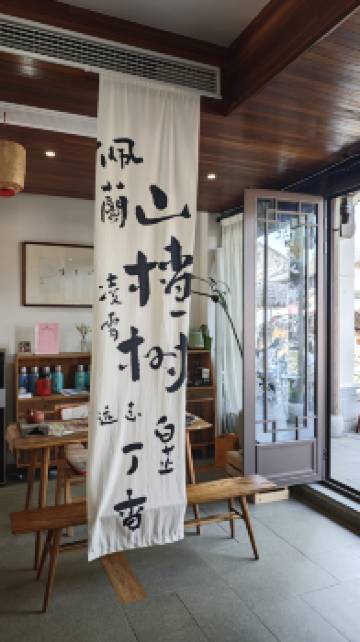 佩蘭
山楂树
凌霄
远志
白芷
丁香